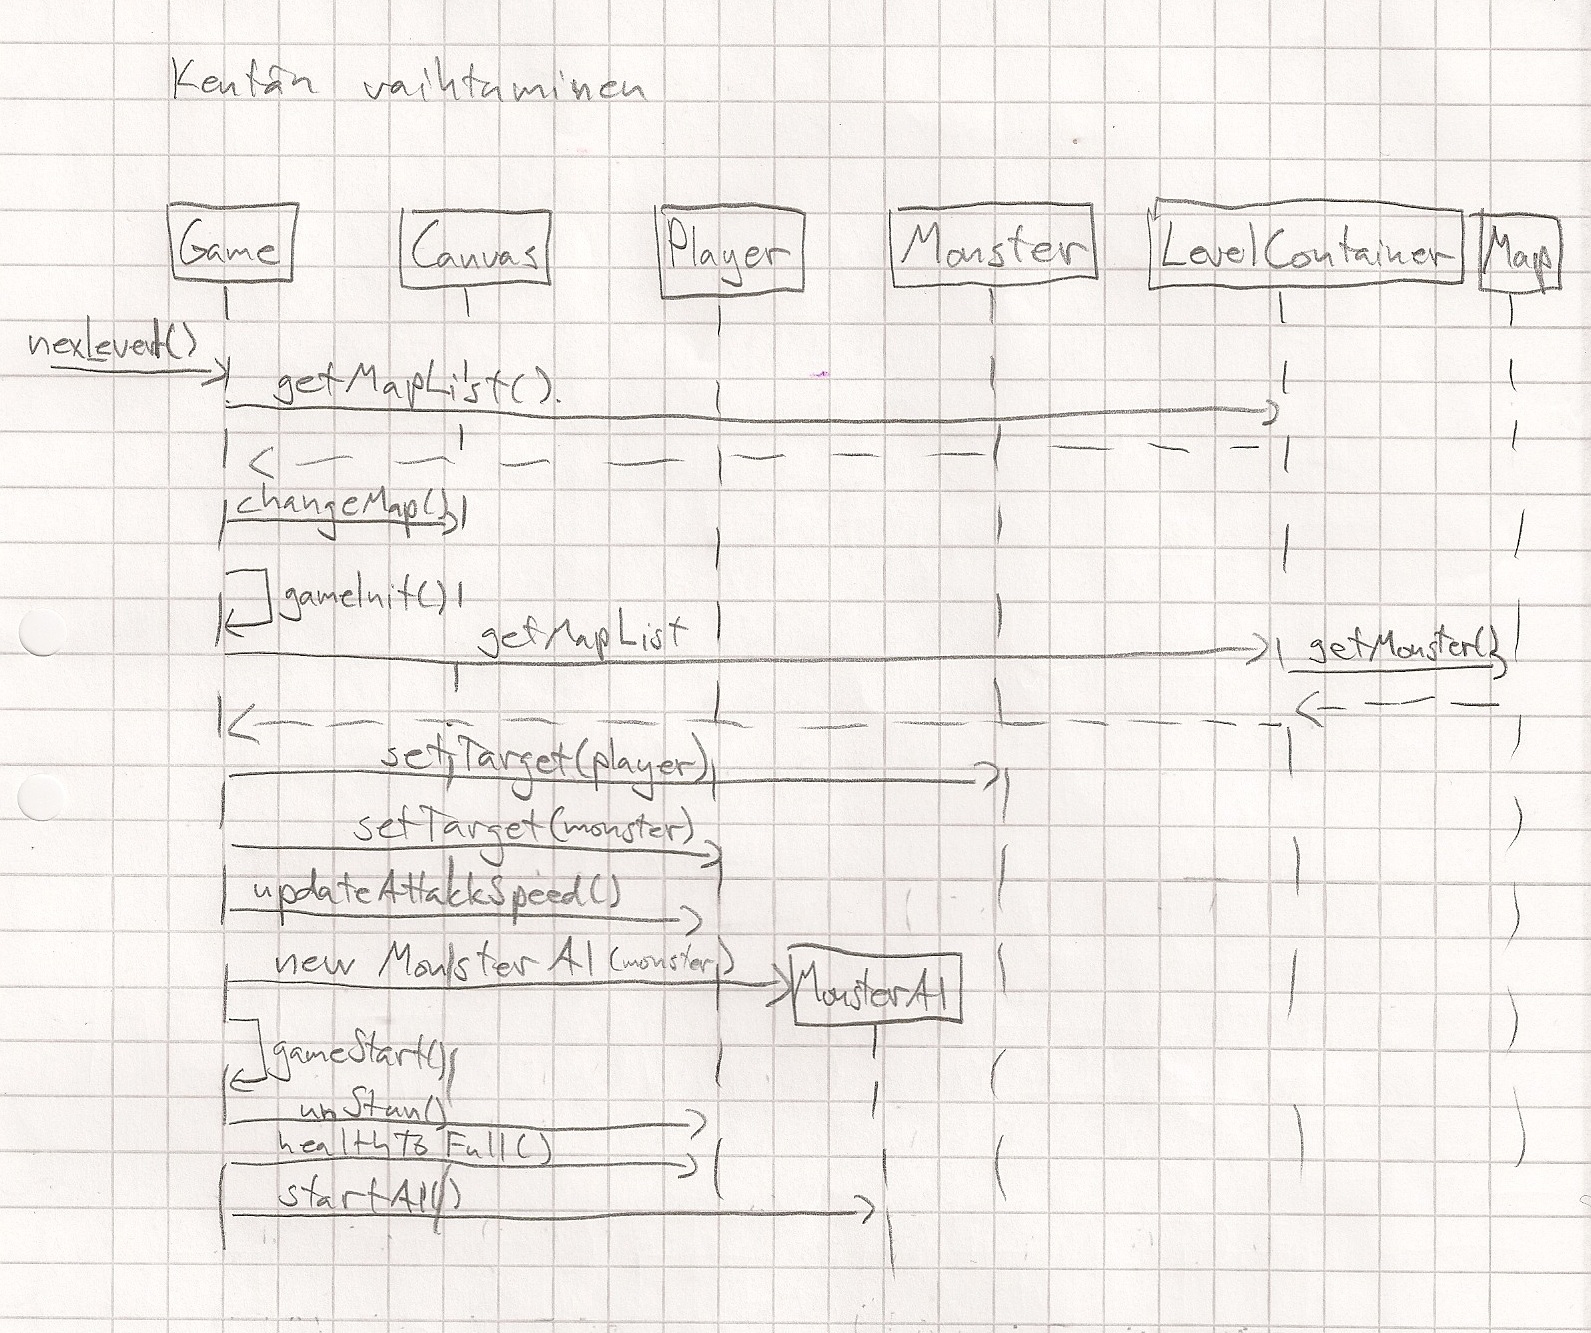 Kentän vaihtaminen
Game Canvas Player Monster LevelContainer Map
getMapList().
changeMap()
gameInit()
getMapList
getMonster()
setTarget(player)
setTarget(monster)
updateAttackSpeed()
new MonsterAI (monster)
MonsterAI
gameStart()
unStun()
healthToFull()
startAI()